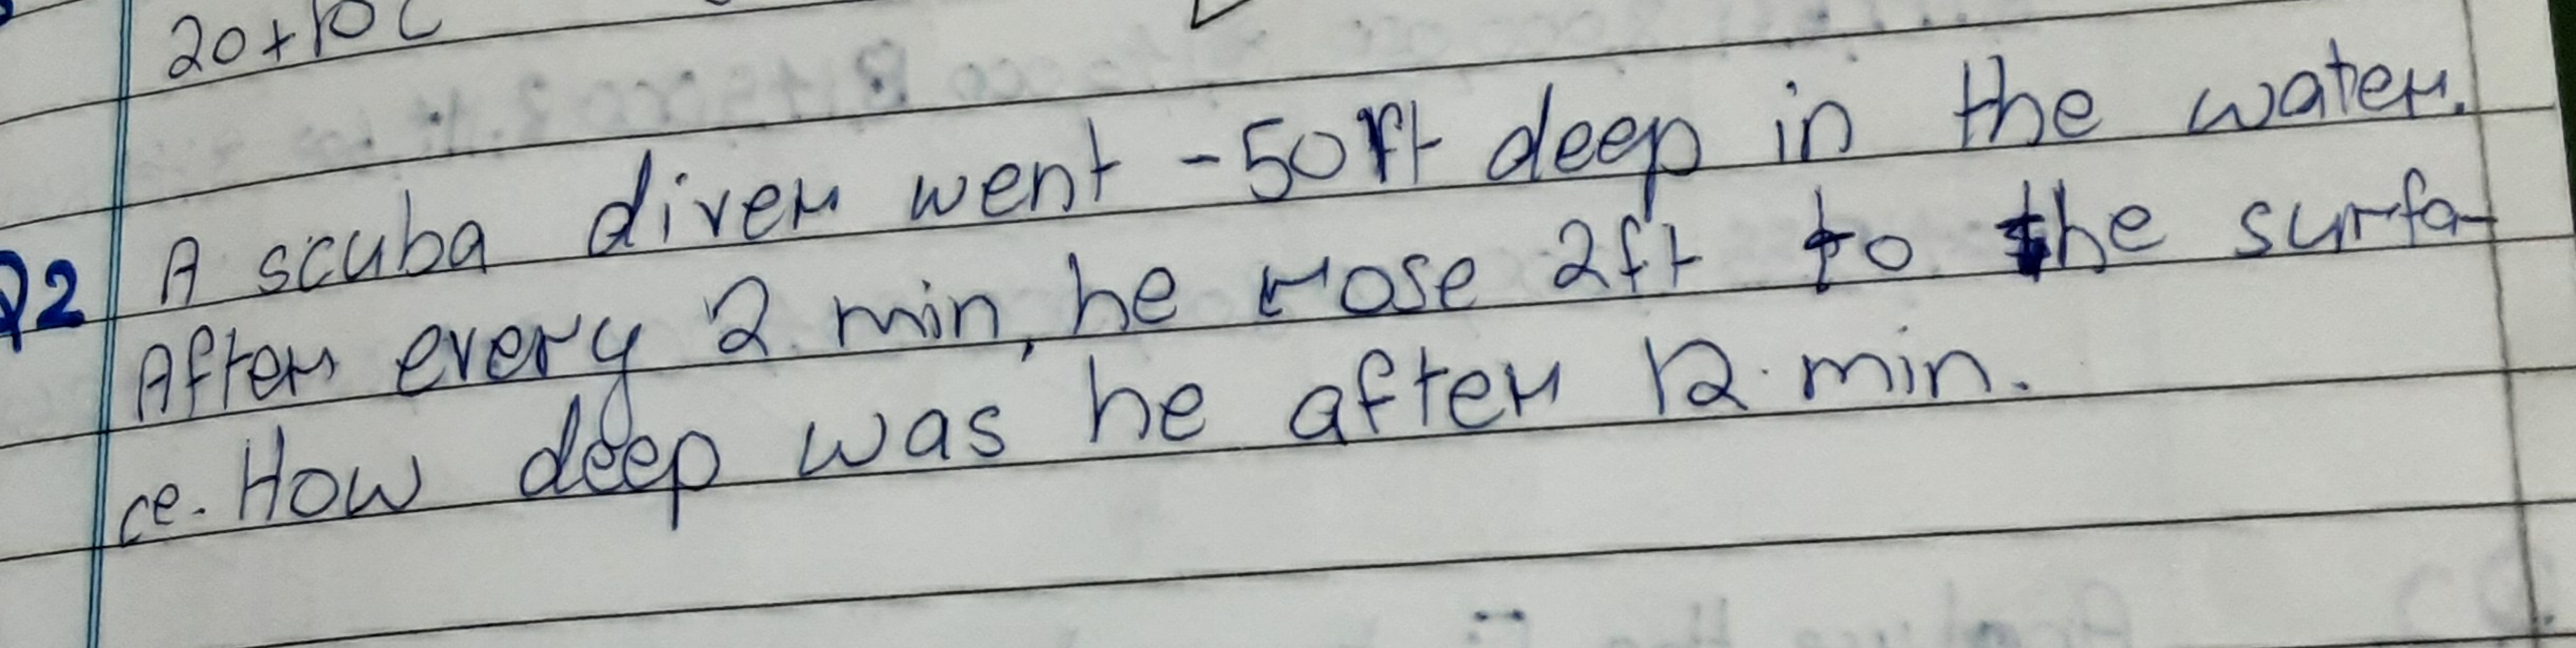 20+10C
Q2 A scuba diver went -50ft deep in the water.
After every 2 min, he rose 2ft to the surfa-
ce. How deep was he after 12 min.